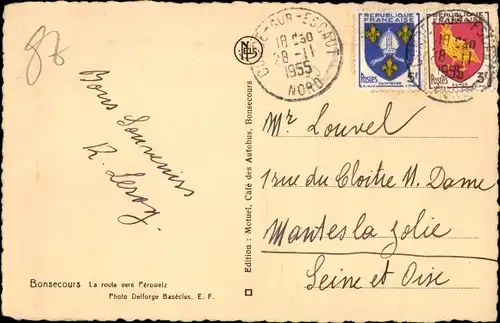 87
CONDÉ-SUR-ESCAUT
18 H30
28-11
1955
NORD
REPUBLIQUE
FRANÇAISE
Postes
5F
REPUBLIQUE
FRANÇAISE
Postes
3F
18 H30
28-11
1955
Bons Souvenirs
R. Leroy.
Mr Louvel
1 rue du Cloitre N. Dame
Mantes la Jolie
Seine et Oise
Edition : Motuel, Café des Autobus, Bonsecours
Bonsecours La route vers Péruwelz
Photo Delforge Basècles, E. F.